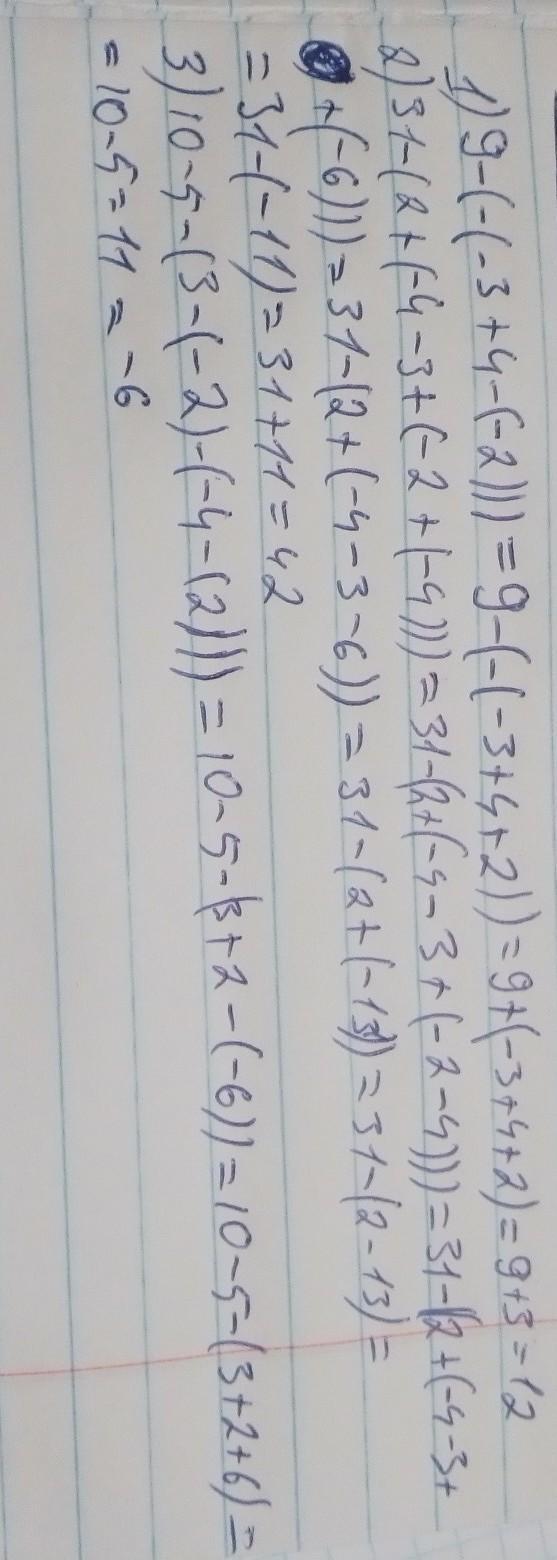 1) 9-(-(-3+4-(-2))) = 9-(-(-3+4+2)) = 9+(-3+4+2) = 9+3 = 12
2) 31-(2+(-4-3+(-2+(-4))) = 31-(2+(-4-3+(-2-4))) = 31-(2+(-4-3+
+(-6))) = 31-(2+(-4-3-6)) = 31-(2+(-13)) = 31-(2-13) =
= 31-(-11) = 31+11 = 42
3) 10-5-(3-(-2)-(-4-(2))) = 10-5-(3+2-(-6)) = 10-5-(3+2+6) =
= 10-5=11 = -6